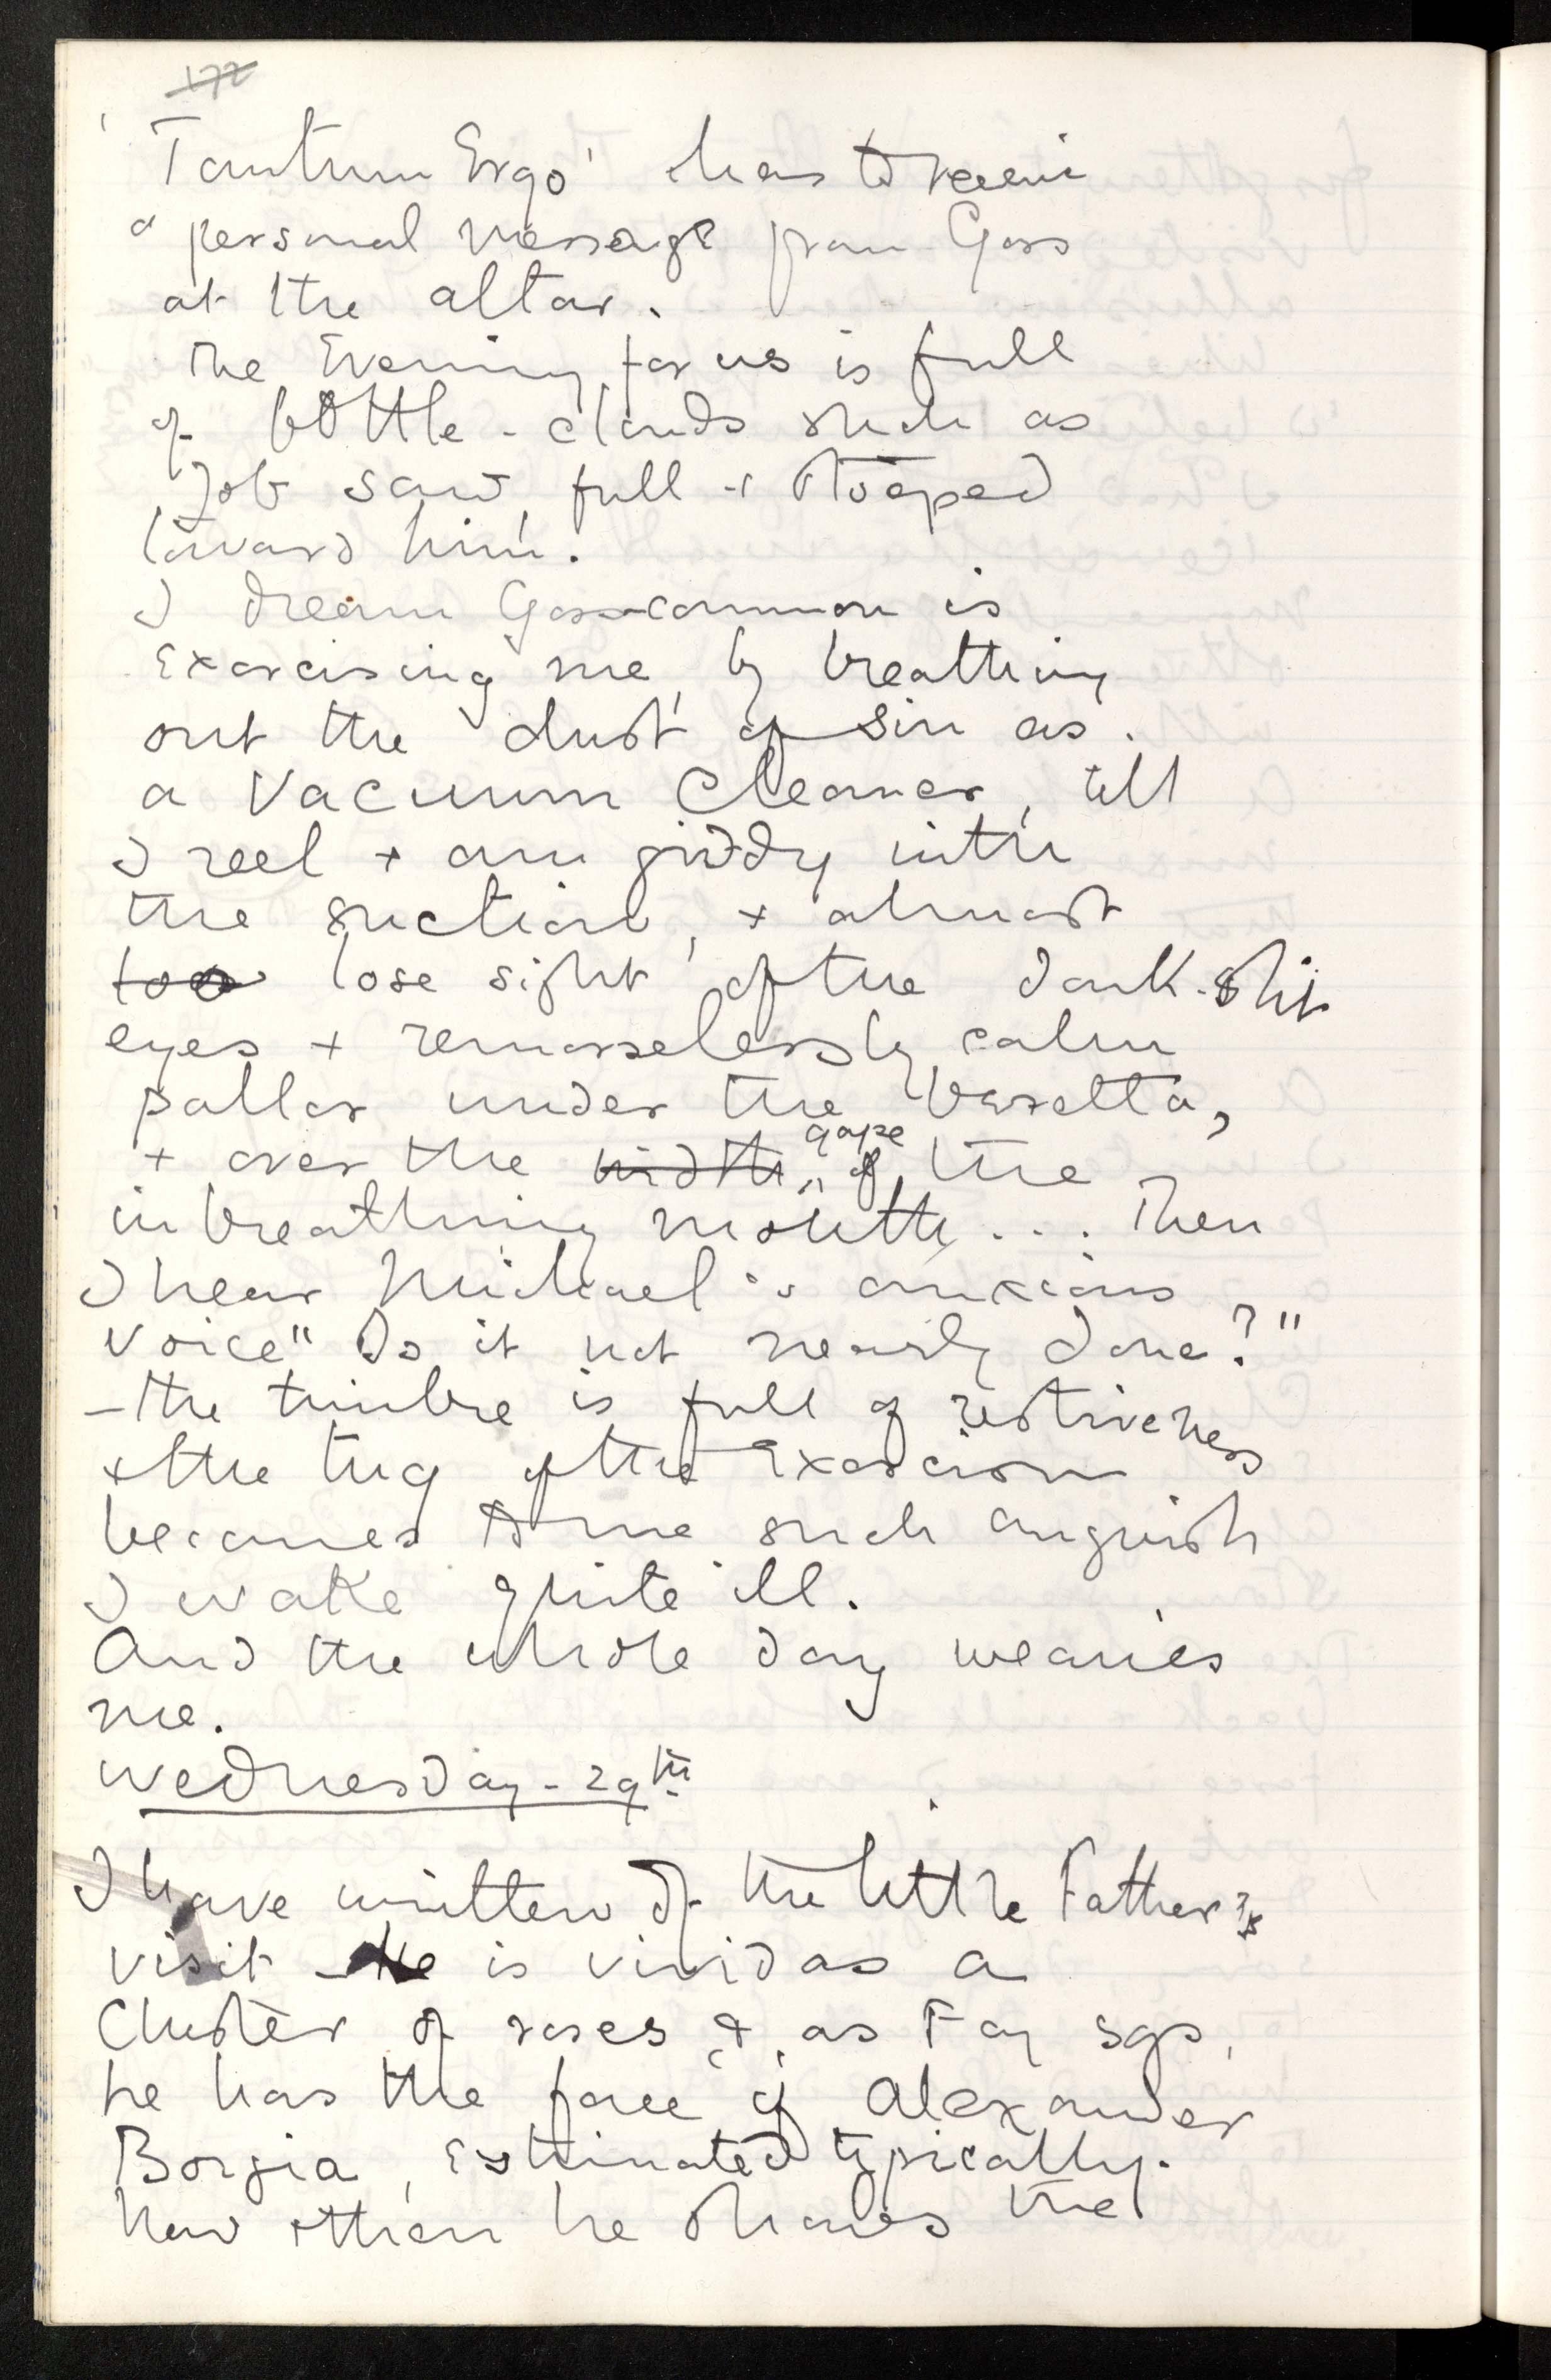 172
'Tantum Ergo' has to receive
a personal message from Goss
at the altar.
The Evening for us is full
of bottle-clouds such as
Job saw, full & stooped
toward him.
I dream Goss-common is
Exorcising me, by breathing
out the dust of sin as
a Vacuum Cleaner, till
I reel + am giddy with
the suction, + almost
too lose sight of the dark-slit
eyes + remorselessly calm
pallor under the beretta,
+ over the width gape of the
inbreathing mouth... Then
I hear Michael's anxious
voice "Is it not nearly done?"
- the timbre is full of restiveness
+ the tug of the Exorcism
becomes to me such anguish
I wake quite ill.
And the whole day wearies
me.
Wednesday - 29th
I have written of the little Father's
visit - He is vivid as a
Cluster of roses &, as Fay sgs,
he has the face of Alexander
Borgia, estimated typically.
Now & then he shows the